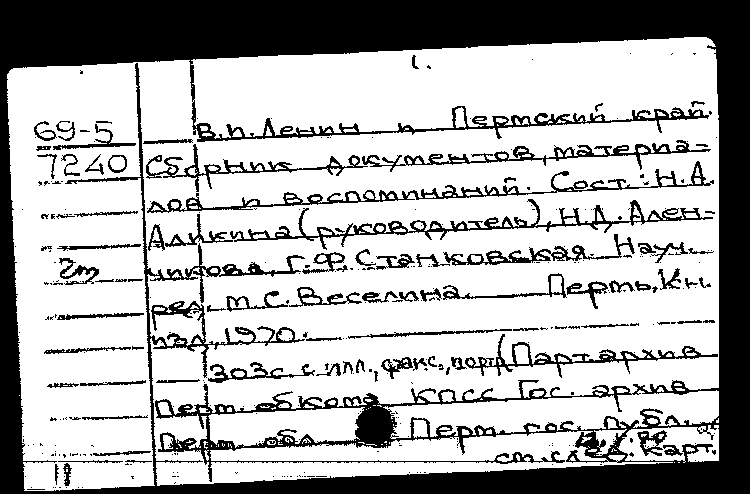 1.
69-5 В.И.Ленин и Пермский край.
7240 Сборник документов, материа=
лов и воспоминаний. Сост.: Н.А.
Аликина (руководитель), Н.Д. Ален=
2т чикова, Г.Ф. Станковская. Науч.
ред. М.С. Веселина. Пермь, Кн.
изд., 1970.
303с. с илл., факс., портр. (Парт.архив
Перм. обкома КПСС. Гос. архив
Перм. обл. Перм. гос. публ.
см.сл. карт.
18